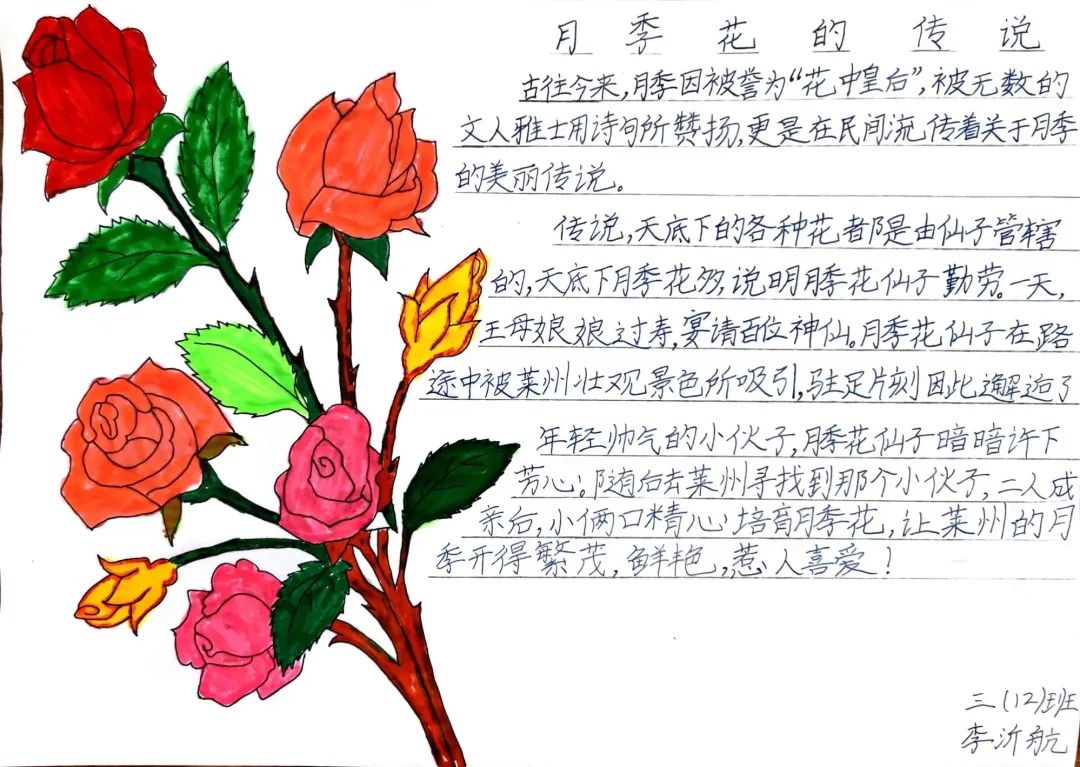 月季花的传说
古往今来,月季因被誉为“花中皇后”,被无数的
文人雅士用诗句所赞扬,更是在民间流传着关于月季
的美丽传说。
传说,天底下的各种花都是由仙子管辖
的,天底下月季花多,说明月季花仙子勤劳。一天,
王母娘娘过寿,宴请百位神仙。月季花仙子在路
途中被莱州壮观景色所吸引,驻足片刻因此邂逅了
年轻帅气的小伙子,月季花仙子暗暗许下
芳心。随后去莱州寻找到那个小伙子,二人成
亲后,小俩口精心培育月季花,让莱州的月
季开得繁茂,鲜艳,惹人喜爱!
三(12)班
李沂航